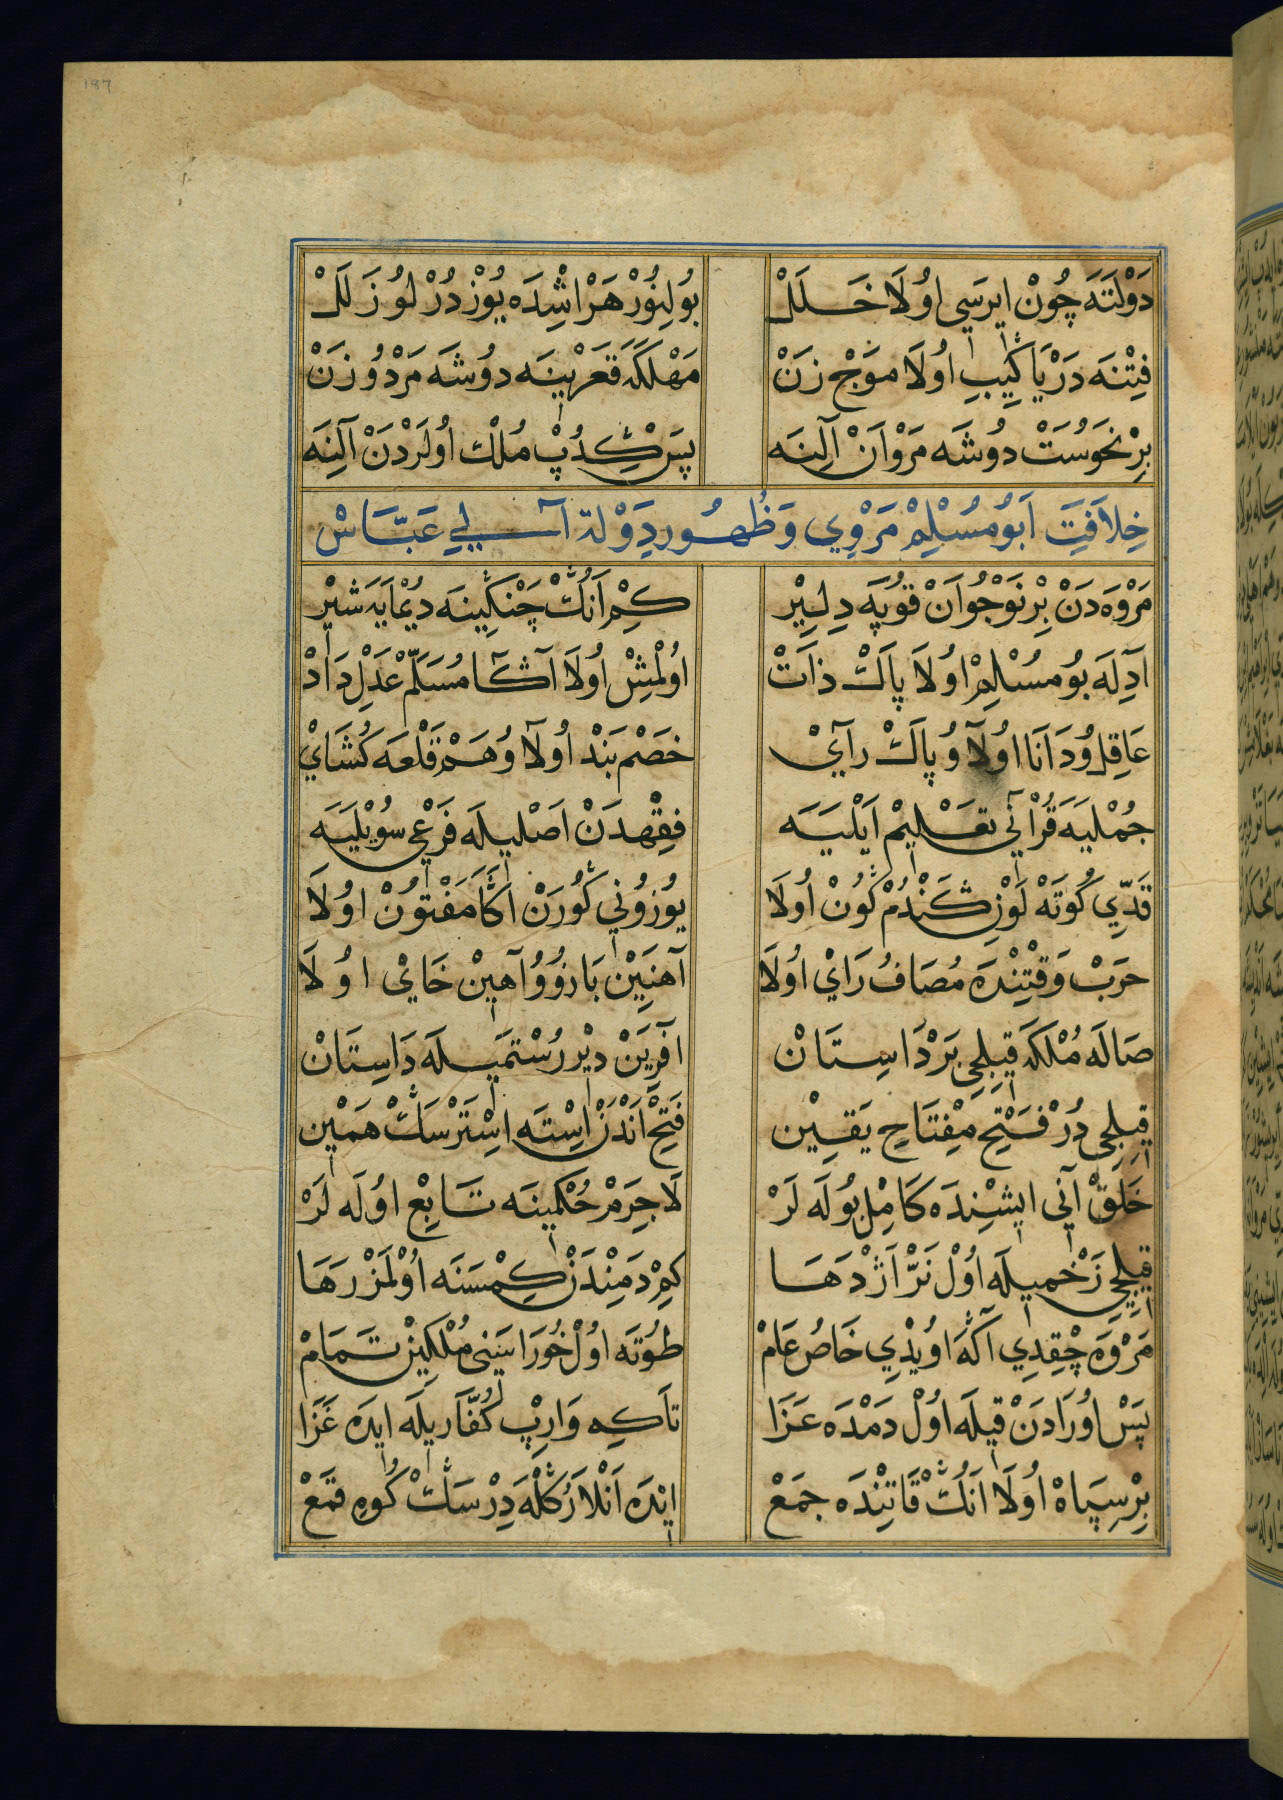 دَوْلَتَه چُونْ ایرسَی اوُلَا خَلَلْ بوُلِنُوْرْ هَرْ اشِدَه یُوْزْ دُرْ لوُ زَلَلْ
فِتْنَه دَرْیَا کِیبِ اوُلَا مَوْجْ زَنْ مَهْلَکَه قَعَرْینَه دوُشَه مَرْدُ وُزَنْ
بِرْ نَحَوُسَتْ دوُشَه مَرْوَانْ آلِنَه پَسْ کِدُپْ مُلْكْ اوُلَرْدَنْ آلِنَه
خِلَافَتِ اَبُو مُسْلِمْ مَرْوِي وَظُهُورِ دَوْلَة آلِ عَبَّاسْ
مَرْوَه دَنْ بِرْ نَوْجُوَانْ قوُپَه دِلِیْر کِمْ اَنُكْ چَنْکِینَه دَیُمَایَه شیْرْ
آدِلَه بُو مُسْلِمْ اوُلَا پَاكْ ذَاتْ اوُلْمِشْ اوُلَا آكَا مُسَلَّمْ عَدْلِ دَادْ
عَاقِلُ وُ دَانَا اوُلَا وُ پَاكْ رَآیْ خَصْم بَنْد اوُلَا وُ هَمْ قَلْعَه کُشَایْ
جُمْلَیَه قُرْآنِي تَعْلِیمْ اَیْلَیَه فِقْهدَنْ اَصْلِیلَه فَرْعِي سُویْلَیَه
قَدِّي کُوتَه لَوْنِ كَنْدُمْ کوُنْ اوُلَا یوُزوُني کوُرَنْ اَكَا مَفْتوُنْ اوُلَا
حَرَبْ وَقْتِنْدَه مُصَافُ رَايْ اوُلَا آهِنِیْنْ بَازوُ وُ آهِینْ خَايْ اوُلَا
صَالَه مُلْکَه قِیلِجِي بَرْدَاسِتَانْ آفَرِیَنْ دیْر رُسْتَمِیلَه دَاسِتَانْ
قِیلِجِي دُرْ فَتْحِ مِفْتَاحِ یَقِیْن فَتِحْ اَنْدَنْ اِسْتَه اسْتَرْسَكْ هَمِیْن
خَلْقْ آنِي ایشْنِدَه کَامِلْ بُولَه لَرْ لَا جَرَمْ حُکْمینَه تَابِعْ اوُلَه لَرْ
قِیلِجِي زَخْمیلَه اوُلْ نَرّ اَژْدَهَا کِمْ دَمِنْدَنْ کِمْسَنَه اوُلْمَزْ رَهَا
مَرْوَه چِقِدِي آكَه اوُیْدِي خَاصُ عَامْ طوُتَه اوُلْ خُورَاسَنِي مُلْکِیْن تَمَامْ
پَسْ اوُرَادَنْ قِیلَه اوُلْ دَمْدَه عَزَا تَاکِه وَارِپْ کُفَّارِیلَه ایدَه غَزَا
بِرْ سِپَاهْ اوُلَا اَنُكْ قَاتِنْدَه جَمَعْ ایْدَه اَنْلَارْ کَلْلَه دِرْسَكْ کوُهِ قَمَعْ